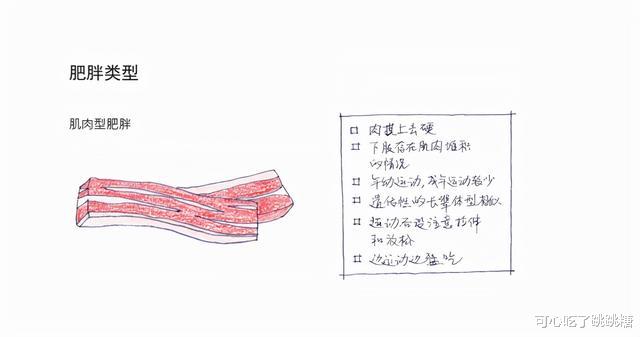 肥胖类型
肌肉型肥胖
肉摸上去硬
下肢存在肌肉堆积
的情况
年幼运动,成年运动较少
遗传性的长辈体型相似
运动后没注意拉伸
和放松
边运动边猛吃
可心吃了跳跳糖